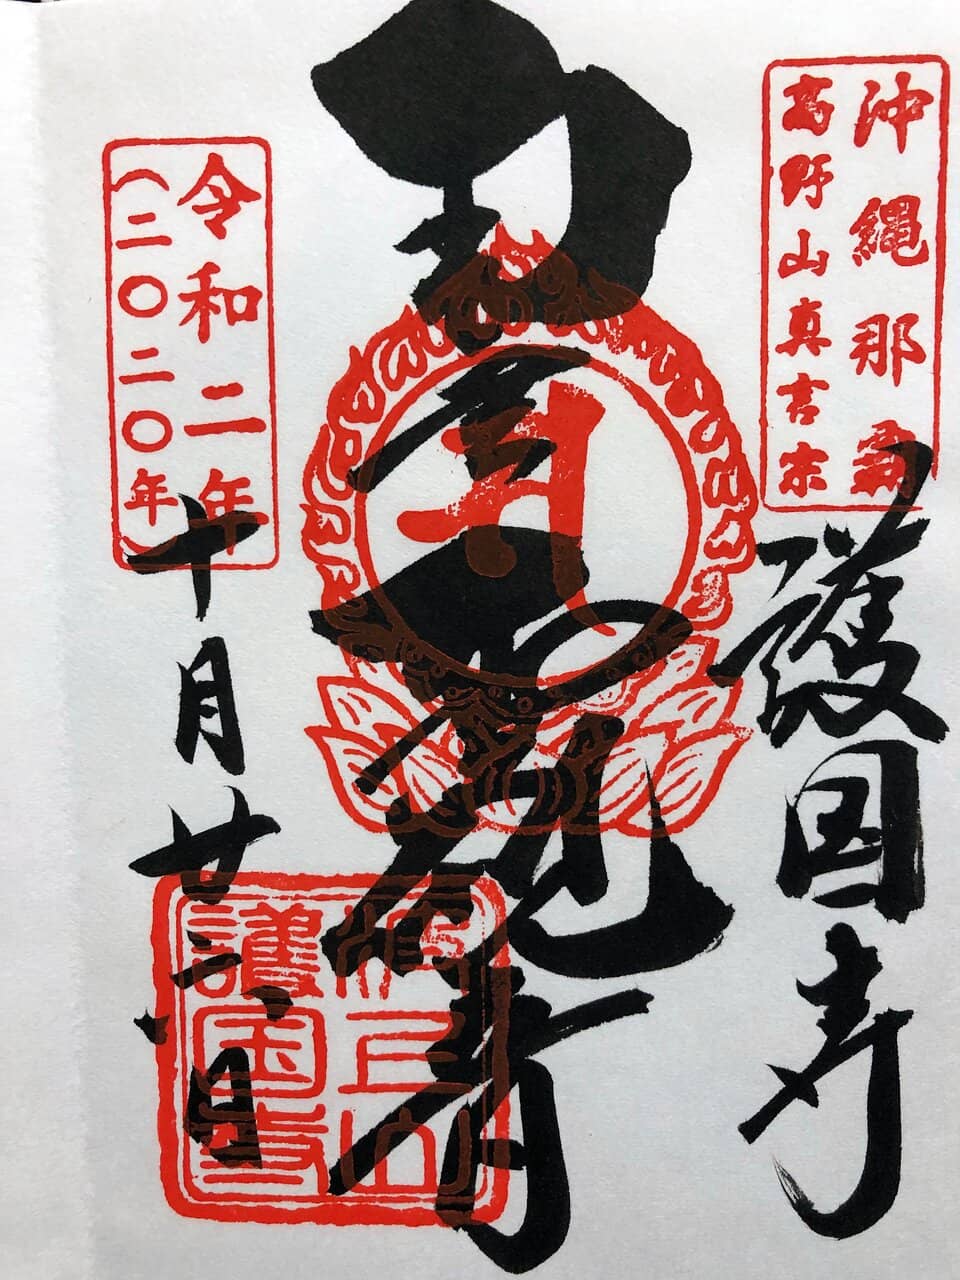 沖縄那覇
高野山真言宗
護国寺
令和二年
(二〇二〇年)
十月廿六日
波上山
護国寺